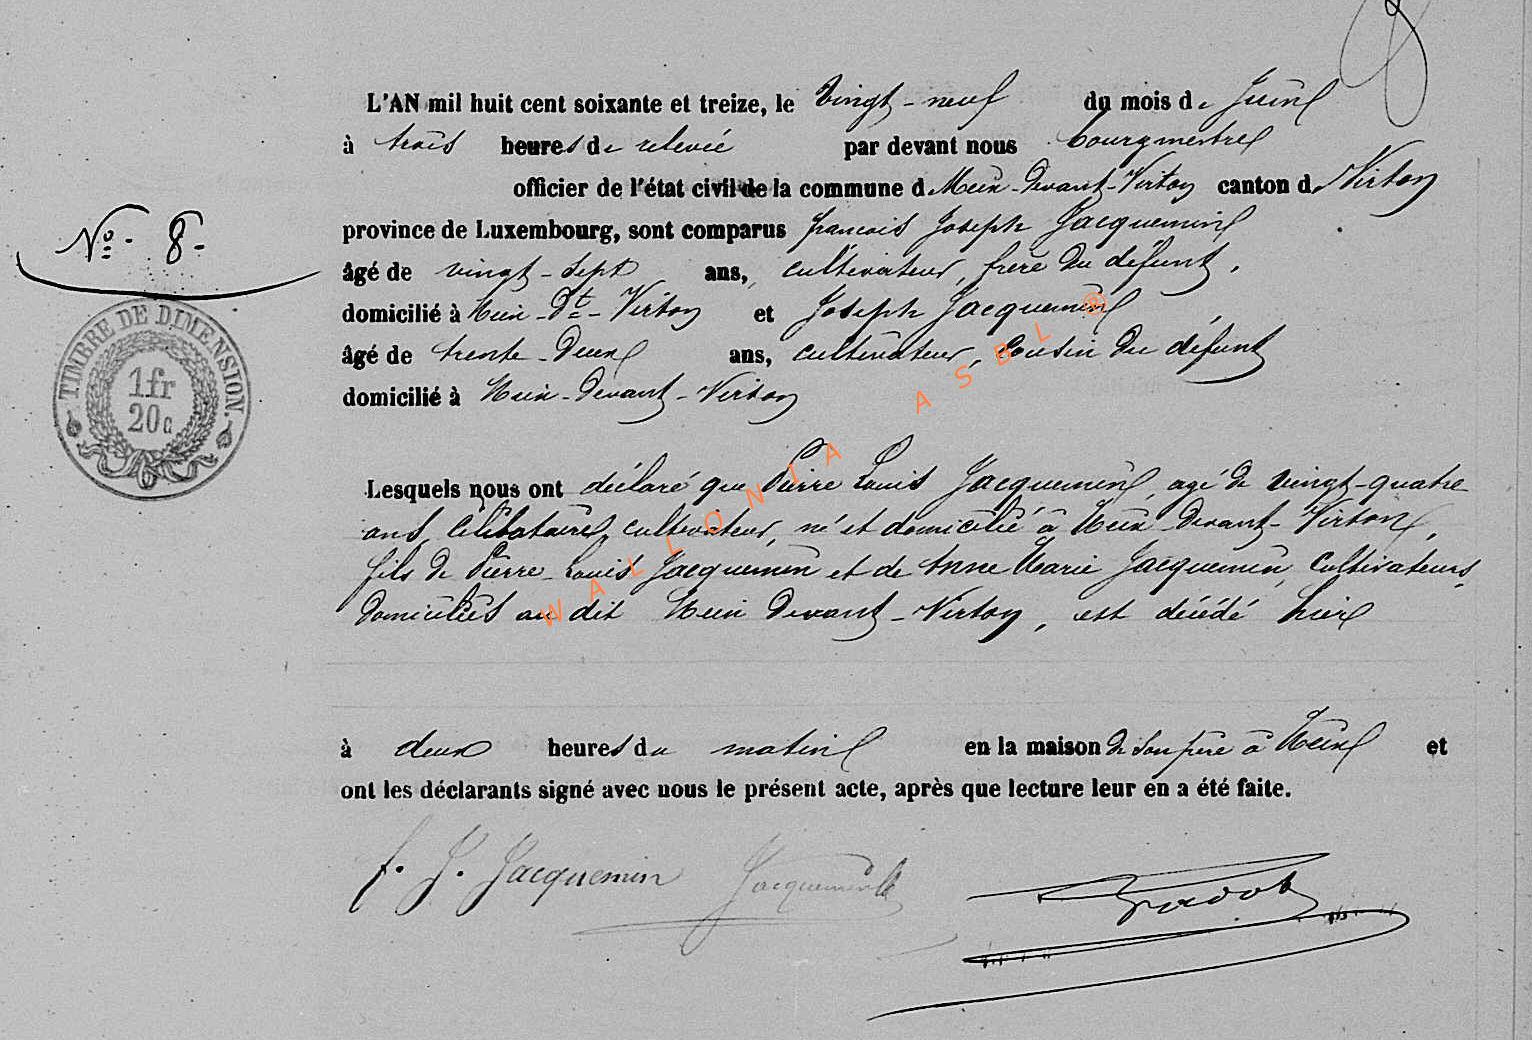 8
L'AN mil huit cent soixante et treize, le vingt-neuf du mois de Juin
à trois heures de relevée par devant nous bourgmestre
officier de l'état civil de la commune d Meix-Devant-Virton canton de Virton
province de Luxembourg, sont comparus francois Joseph Jacquemin
N° 8
âgé de vingt-sept ans, cultivateur, frère du défunt,
domicilié à Meix-Dt-Virton et Joseph Jacquemin
âgé de trente-deux ans, cultivateur, cousin du défunt
domicilié à Meix-Devant-Virton
TIMBRE DE DIMENSION.
1fr
20c
Lesquels nous ont déclaré que Pierre Louis Jacquemin, agé de vingt-quatre
ans, célibataire, cultivateur, né et domicilié à Meix Devant-Virton,
fils de Pierre-Louis Jacquemin et de Anne Marie Jacquemin, cultivateurs,
domiciliés au dit Meix Devant-Virton, est décédé hier
à deux heures du matin en la maison de son père à Meix et
ont les déclarants signé avec nous le présent acte, après que lecture leur en a été faite.
f. J. Jacquemin Jacquemin
WALLONIA ASBL ®